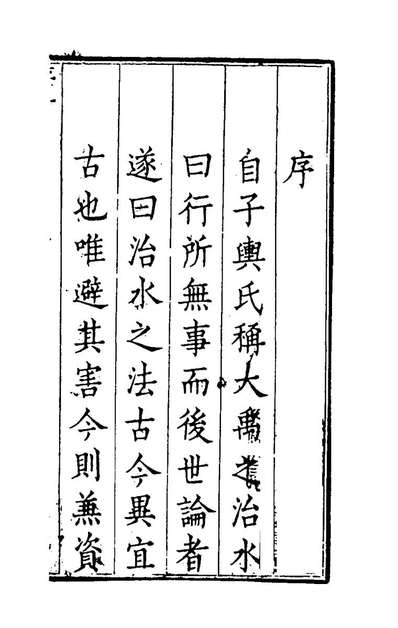 序
自子輿氏稱大禹之治水
曰行所無事而後世論者
遂曰治水之法古今異宜
古也唯避其害今則兼資